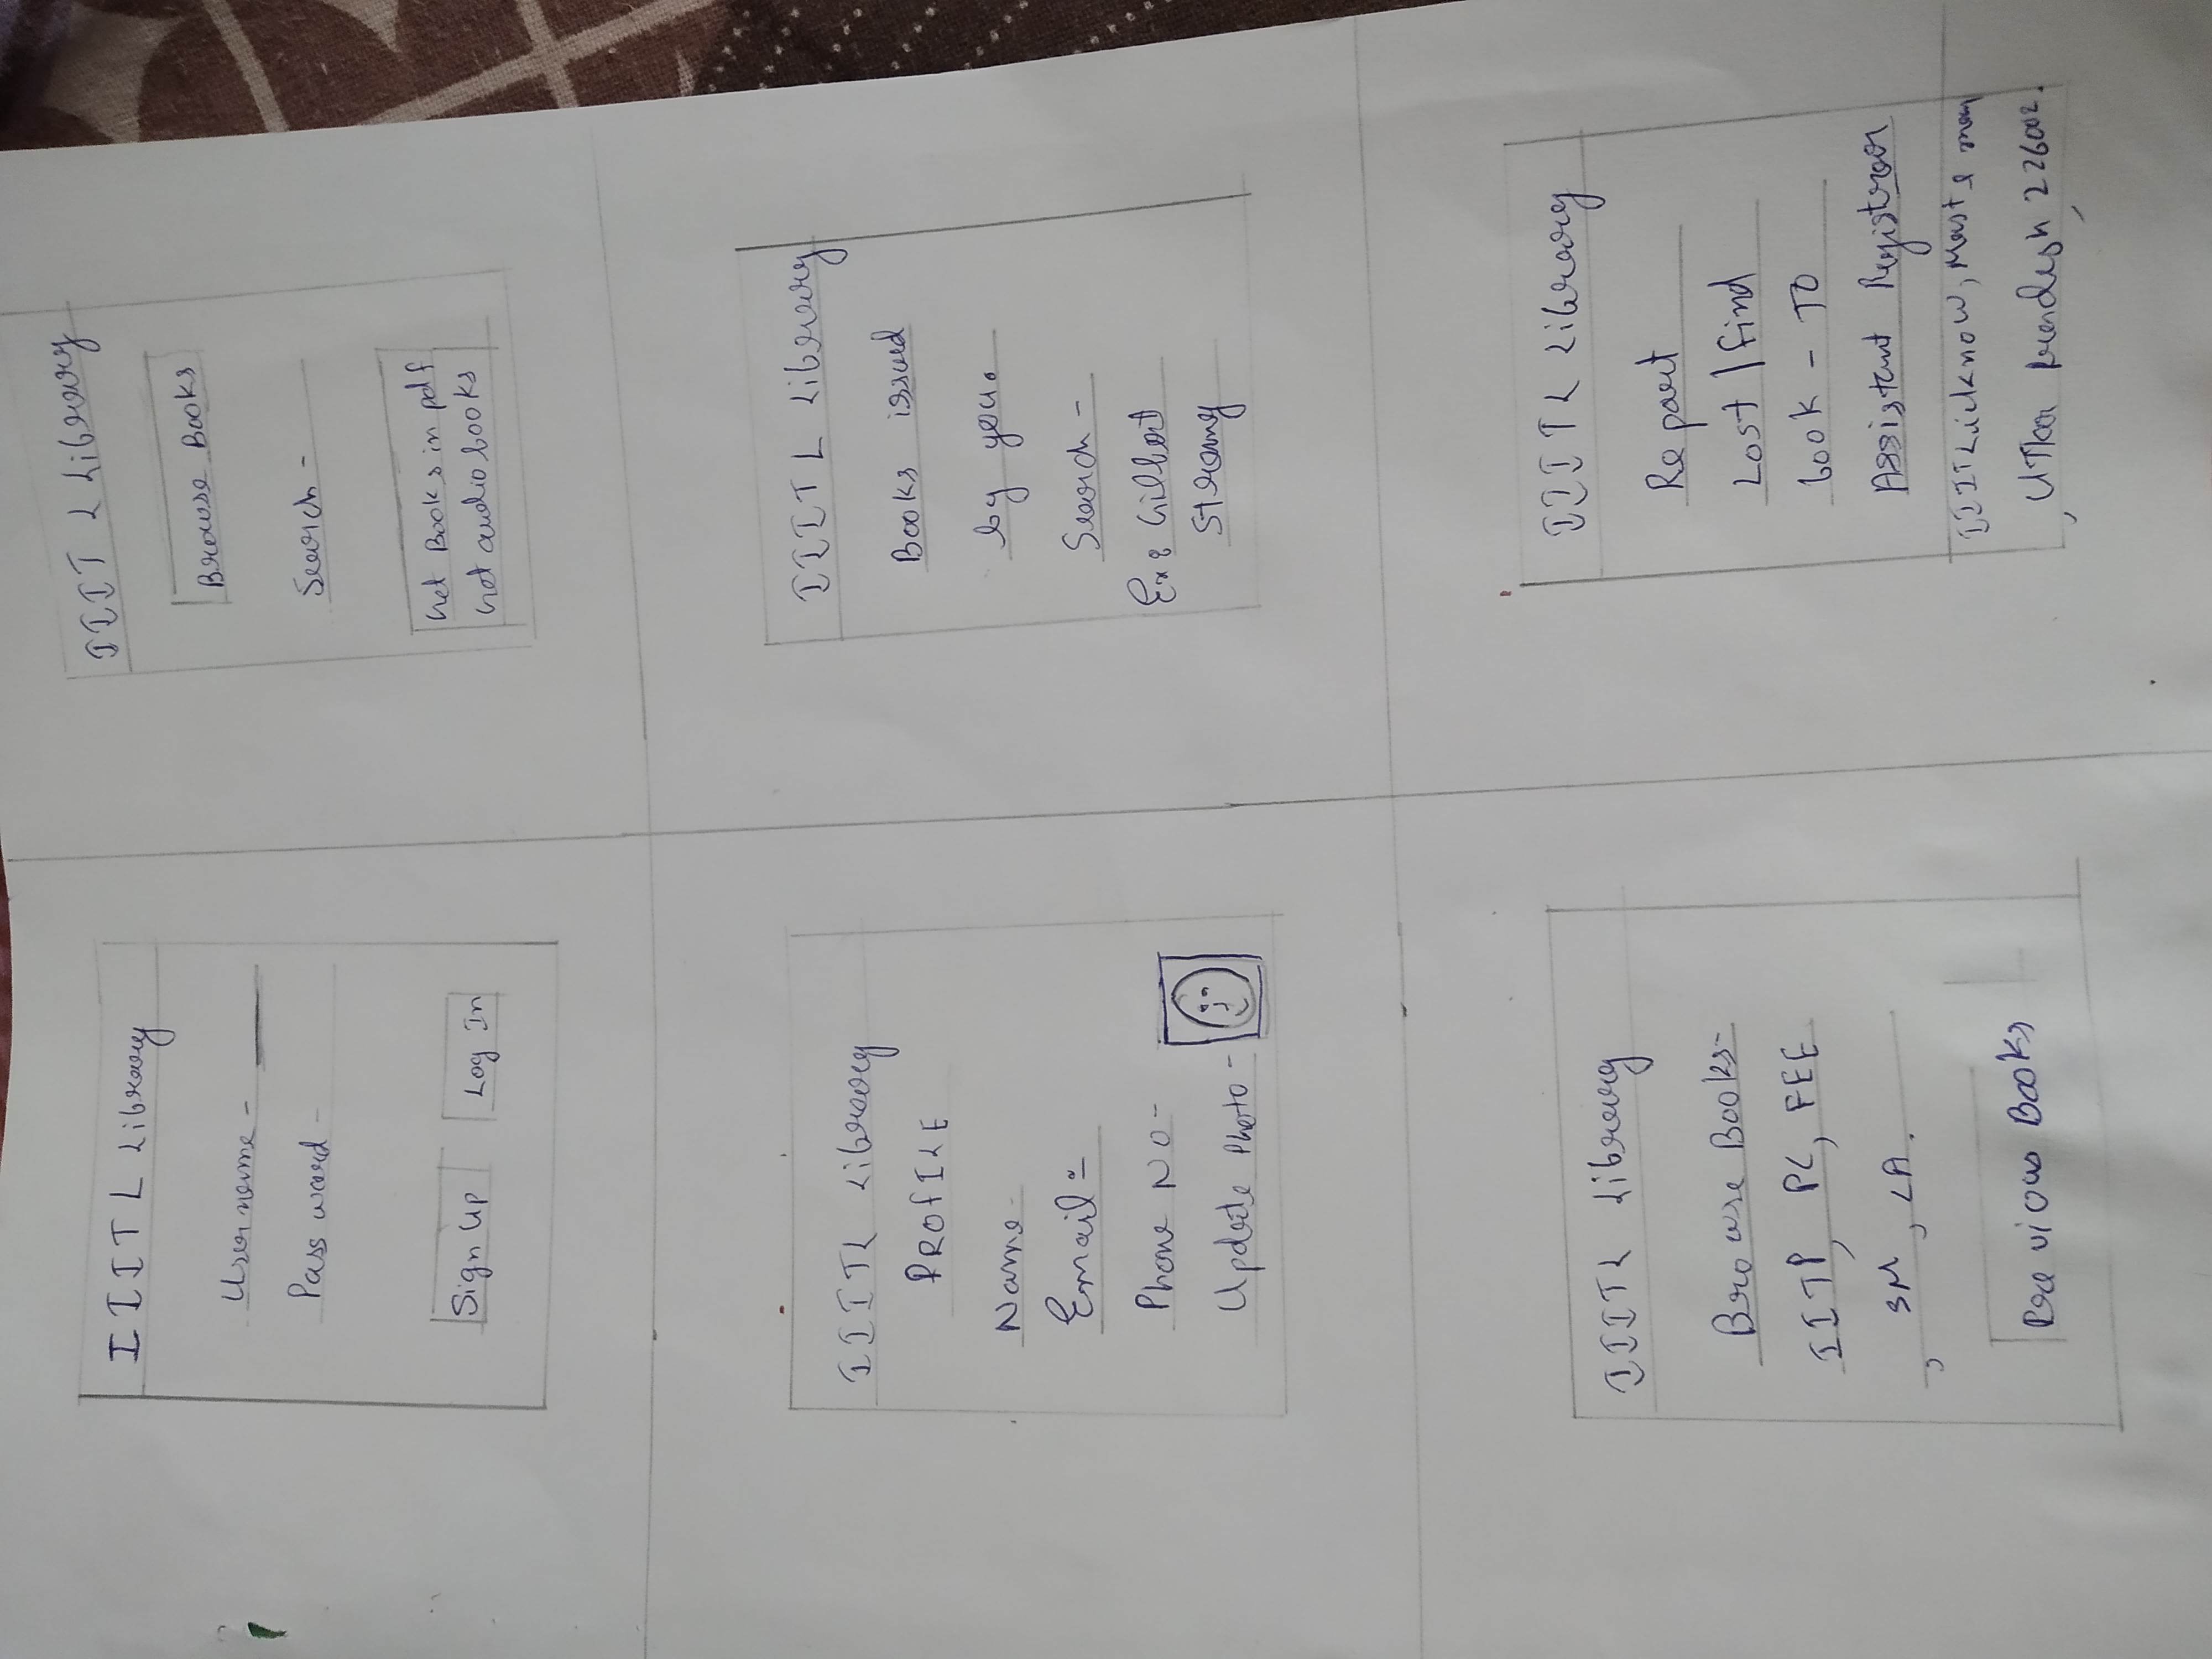 IIITL Library
Username -
Password -
Sign Up
Log In
IIITL Library
Browse Books
Search -
Get Books in pdf
Get audio books
IIITL Library
PROFILE
Name -
Email :-
Phone No -
Update Photo -
IIITL Library
Books issued
by you.
Search -
Ex: Gilbert
Strang
IIITL Library
Browse Books -
IITP, PC, FEE
, SM, LA.
Previous Books
IIITL Library
Report
Lost / Find
book - TO
Assistant Registrar
IIIT Lucknow,
, Uttar Pradesh, 226002.